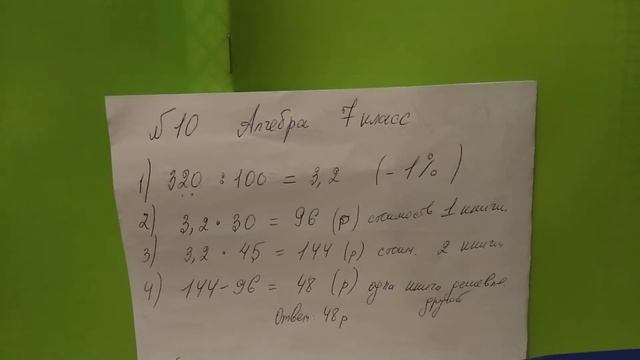 №10 Алгебра 7 класс
1) 320 : 100 = 3,2 (- 1%)
2) 3,2 · 30 = 96 (р) стоимость 1 книги.
3) 3,2 · 45 = 144 (р) стоим. 2 книги.
4) 144 - 96 = 48 (р) одна книга дешевле
другой
Ответ: 48 р